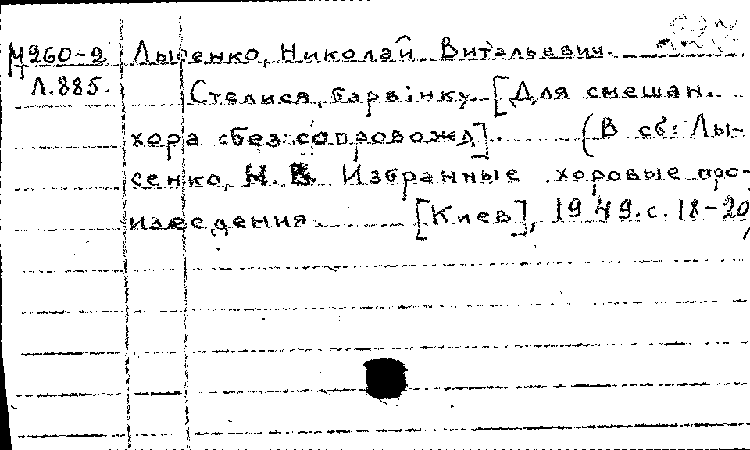 М960-2 Лысенко, Николай Витальевич.
Л.885.
Стелися, барвінку. [Для смешан.
хора без сопровожд]. (В сб: Лы-
сенко, Н. В. Избранные хоровые про-
изведения. [Киев], 1949. с. 18-20,